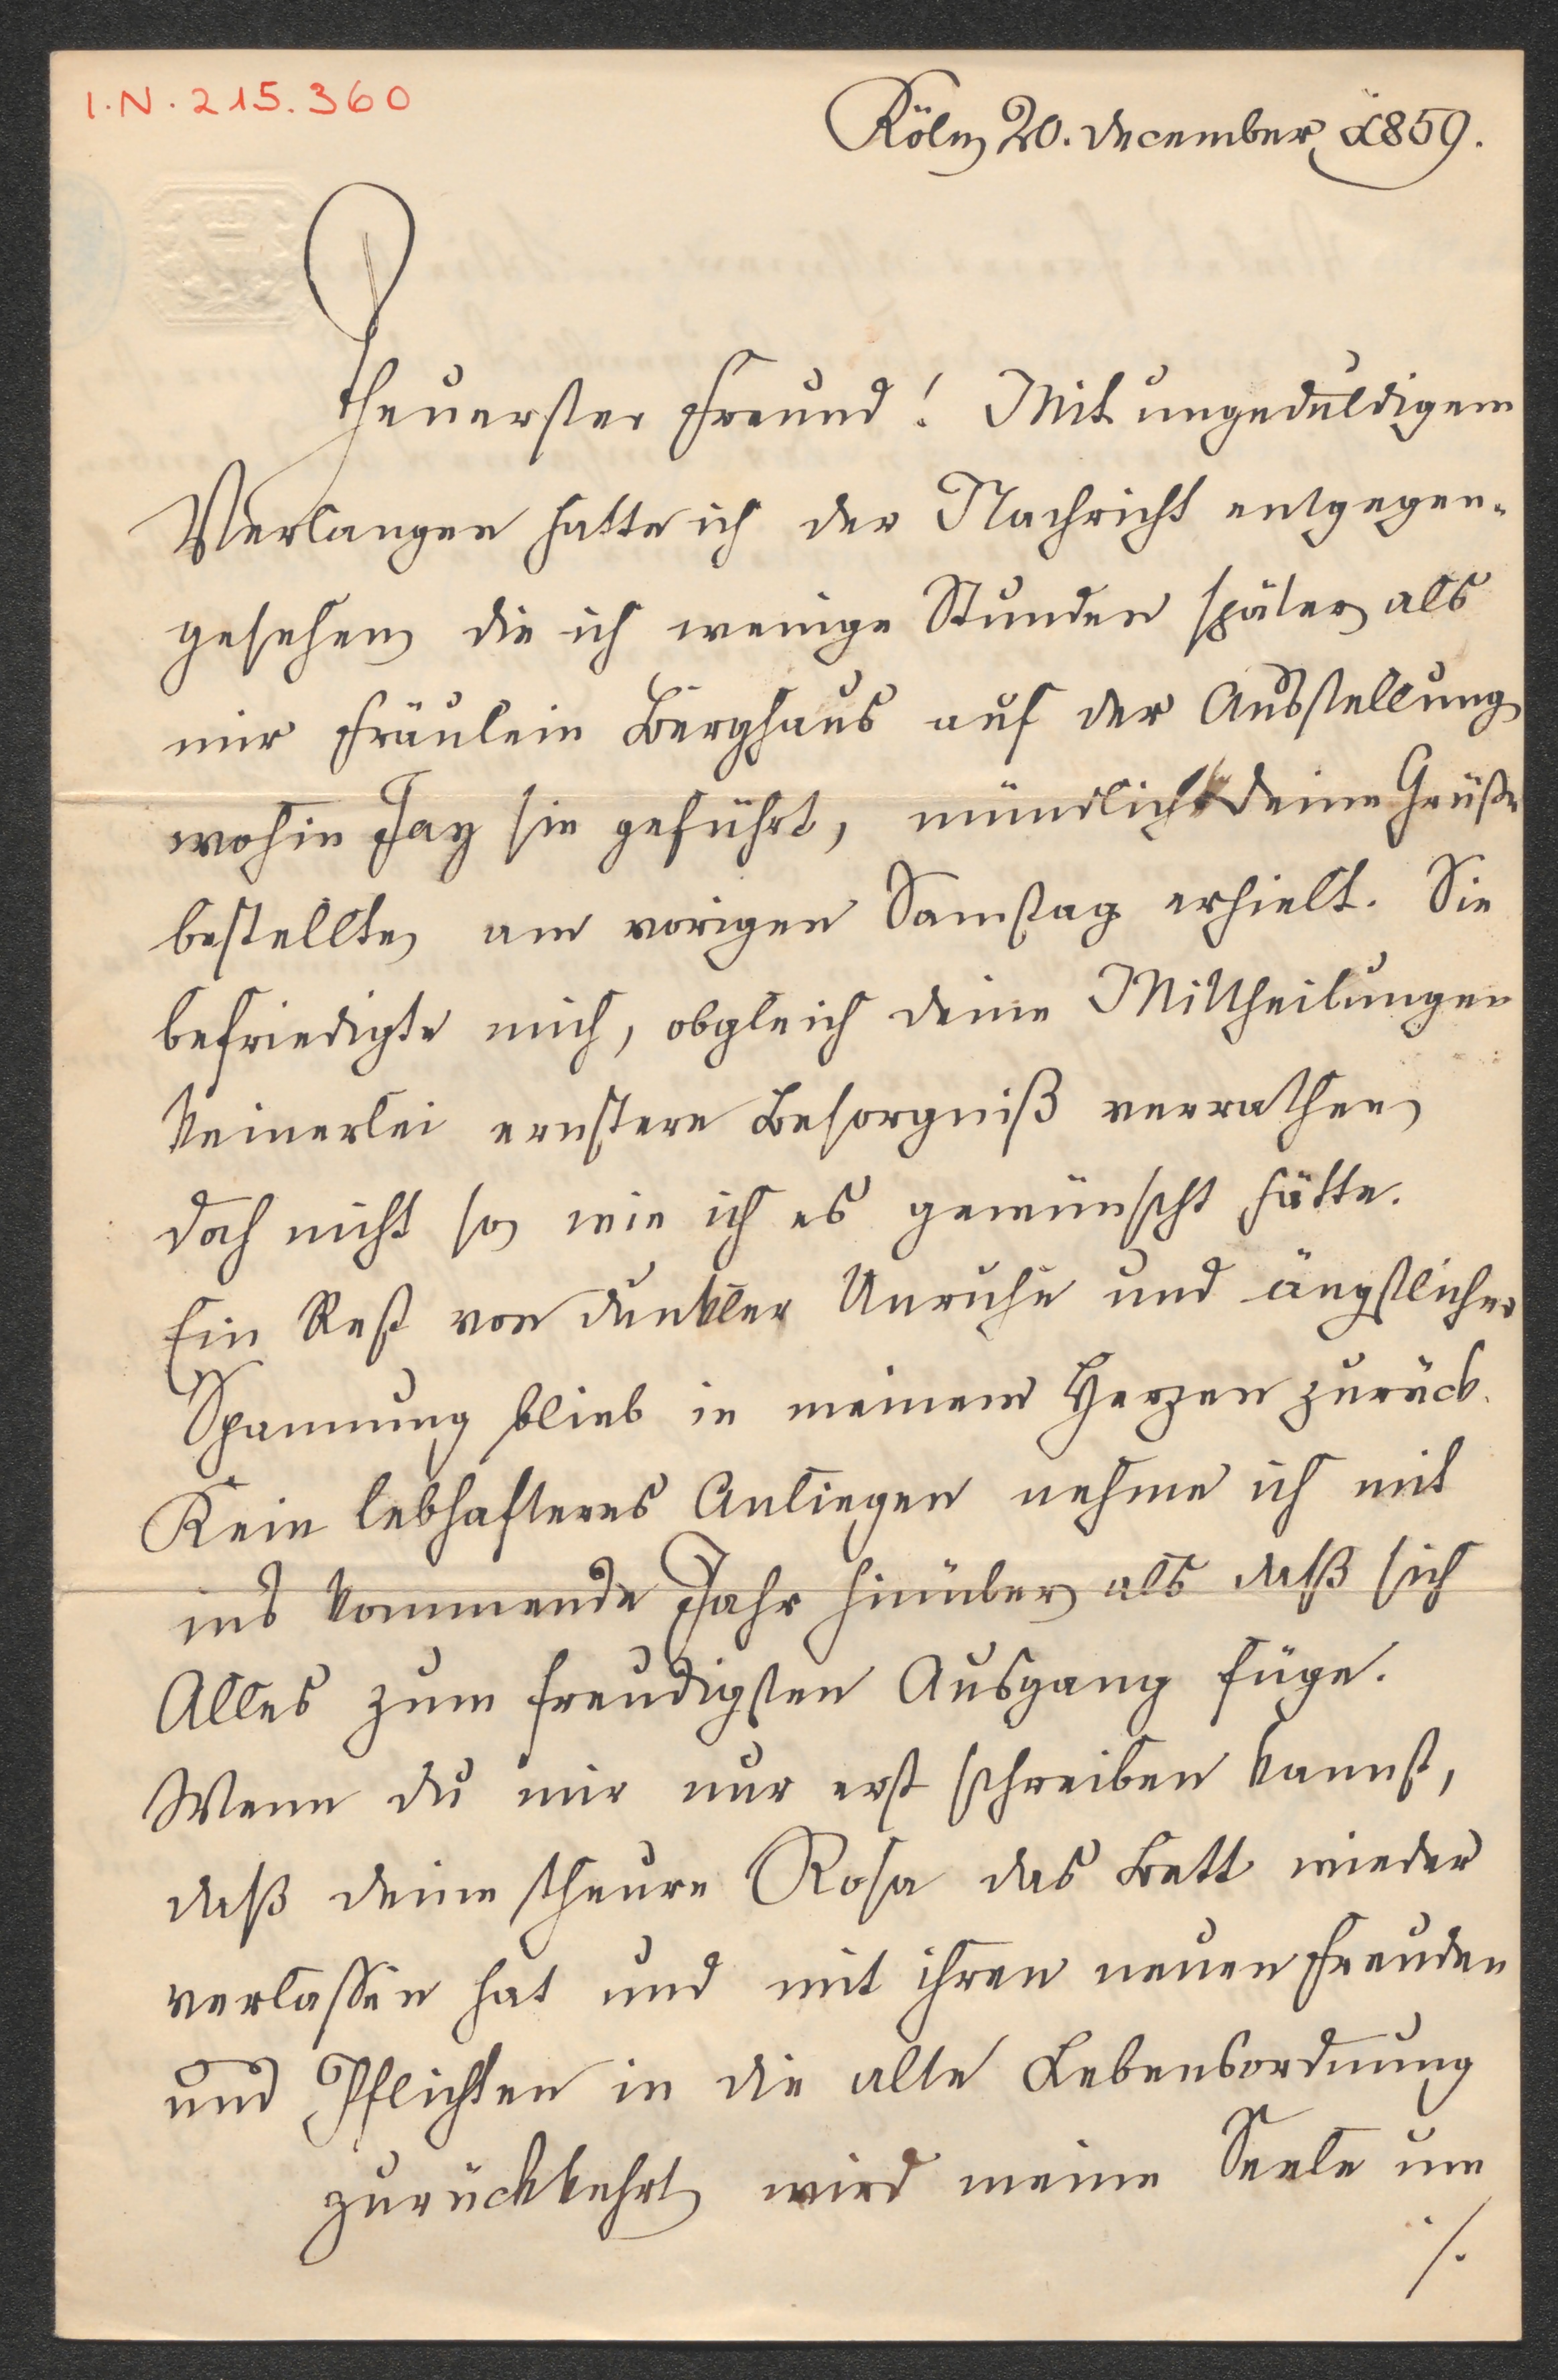 I.N. 215.360
Köln 20. December 1859.
Theuerster Freund! Mit ungeduldigem
Verlangen hatte ich der Nachricht entgegen-
gesehen die ich wenige Stunden später als
mir Fräulein Berghaus auf der Ausstellung
wohin Jay sie geführt, mündlich deine Grüße
bestellte, am vorigen Samstag erhielt. Sie
befriedigte mich, obgleich deine Mittheilungen
keinerlei ernstere Besorgniß verrathen,
doch nicht so, wie ich es gewünscht hätte.
Ein Rest von dunkler Unruhe und ängstlicher
Spannung blieb in meinem Herzen zurück.
Kein lebhafteres Anliegen nehme ich mit
ins kommende Jahr hinüber, als daß sich
Alles zum freudigsten Ausgang füge.
Wenn du mir nur erst schreiben kannst,
daß deine theure Rosa das Bett wieder
verlassen hat und mit ihren neuen Freuden
und Pflichten in die alte Lebensordnung
zurückkehrt, wird meine Seele um
./.